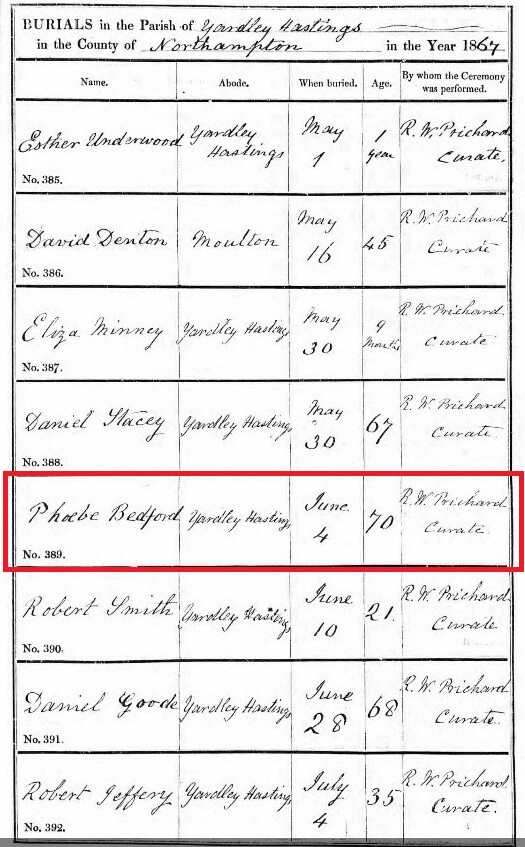 BURIALS in the Parish of Yardley Hastings
in the County of Northampton in the Year 1867
Name. Abode. When buried. Age. By whom the Ceremony was performed.
Esther Underwood Yardley Hastings May 1 1 year R. W. Prichard Curate.
No. 385.
David Denton Moulton May 16 45 R. W. Prichard Curate
No. 386.
Eliza Minney Yardley Hastings May 30 9 Months R. W. Prichard Curate
No. 387.
Daniel Stacey Yardley Hastings May 30 67 R. W. Prichard Curate
No. 388.
Phoebe Bedford Yardley Hastings June 4 70 R. W. Prichard Curate
No. 389.
Robert Smith Yardley Hastings June 10 21. R. W. Prichard Curate
No. 390.
Daniel Goode Yardley Hastings June 28 68 R. W. Prichard Curate.
No. 391.
Robert Jeffery Yardley Hastings July 4 35 R. W. Prichard Curate.
No. 392.